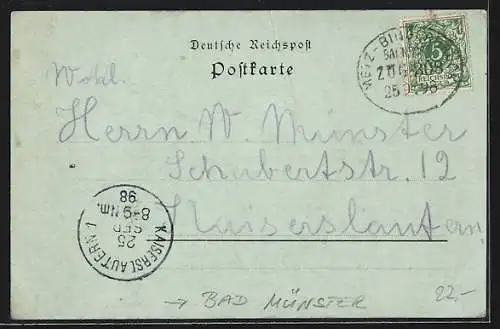 Deutsche Reichspost
Postkarte
METZ-BIN
BAHN
ZUG 808
25 9 98
5
Wohl.
Herrn W. Münster
Schubertstr. 12
Kaiserslautern
KAISERSLAUTERN 1
25
SEP
8-9 Nm.
98
→ BAD MÜNSTER
22.-